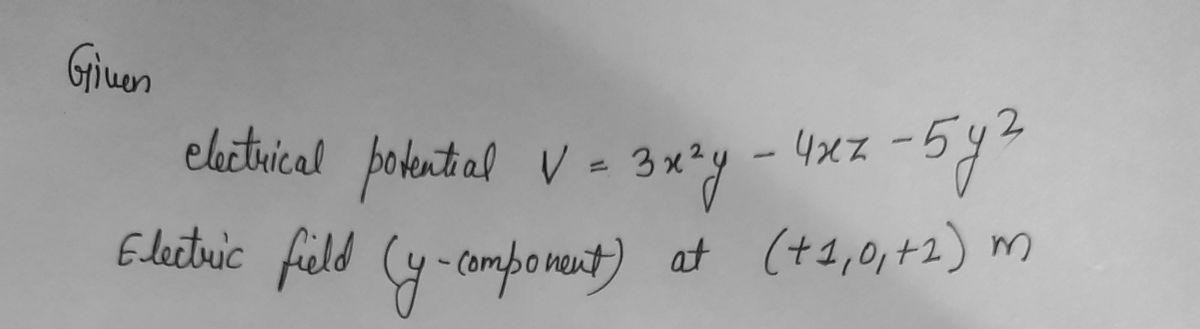 Given
electrical potential V = 3x²y - 4xz - 5y²
Electric field (y-component) at (+1,0,+2) m